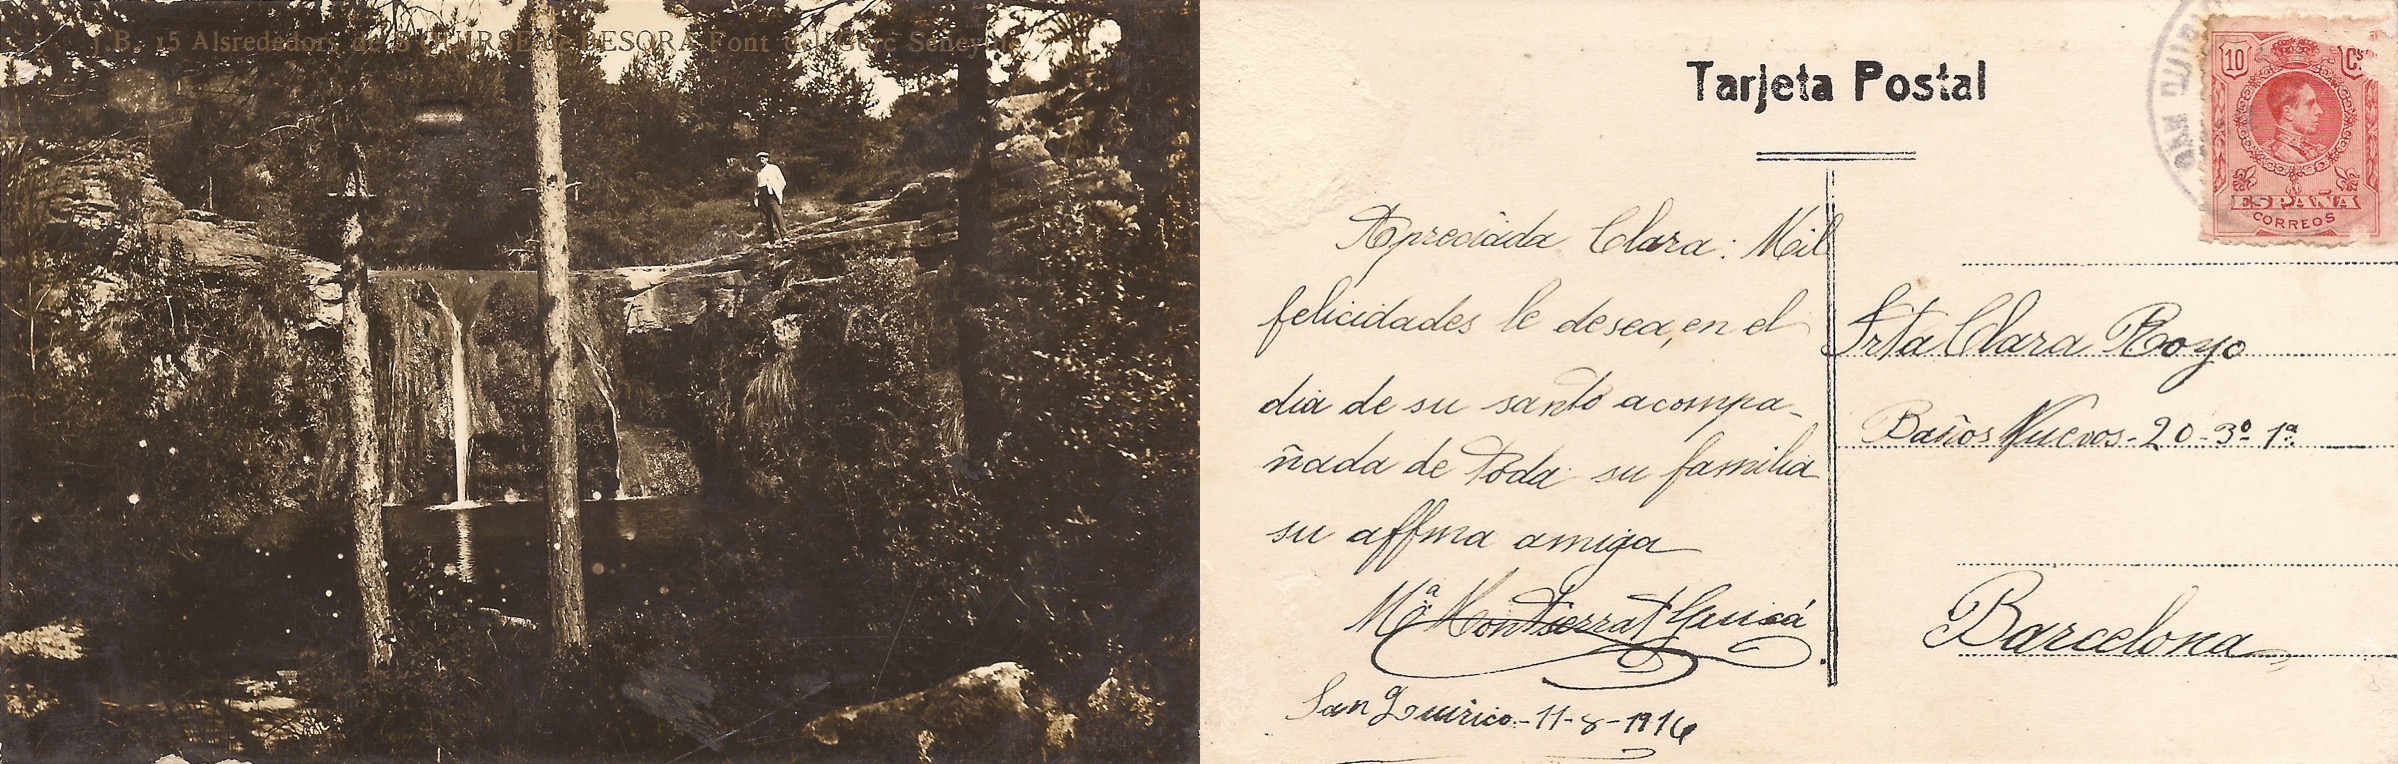 J.B. 15 Alsrededors de St QUIRSE de BESORA Font del Gorc
Tarjeta Postal
10 Cs
ESPAÑA
CORREOS
Apreciada Clara: Mil
felicidades le desea, en el
dia de su santo acompa-
ñada de toda su familia
su affma amiga
Mª Montserrat
San Quirico-11-8-1916
Srta Clara Royo
Baños Nuevos-20-3º 1ª
Barcelona